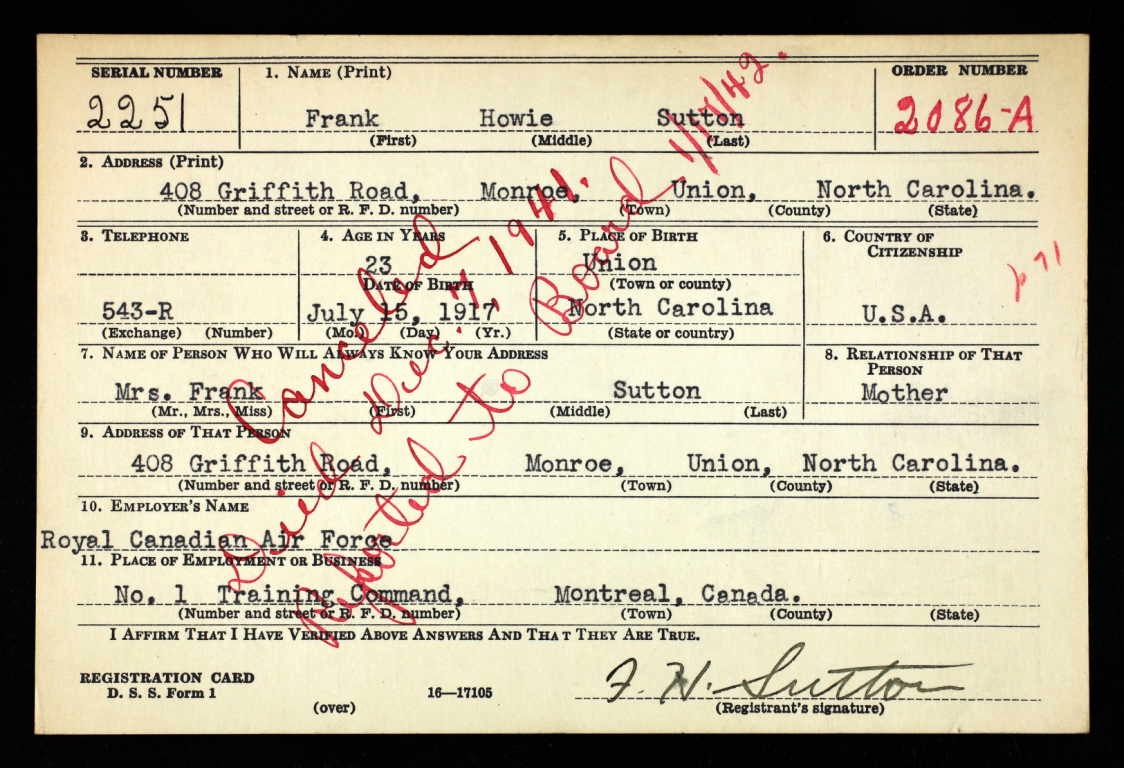 SERIAL NUMBER 1. NAME (Print) ORDER NUMBER
2251 Frank Howie Sutton 2086-A
(First) (Middle) (Last)
2. ADDRESS (Print)
408 Griffith Road, Monroe, Union, North Carolina.
(Number and street or R. F. D. number) (Town) (County) (State)
3. TELEPHONE 4. AGE IN YEARS 5. PLACE OF BIRTH 6. COUNTRY OF
CITIZENSHIP
23 Union
DATE OF BIRTH (Town or county)
543-R July 15, 1917 North Carolina U.S.A.
(Exchange) (Number) (Mo.) (Day) (Yr.) (State or country)
7. NAME OF PERSON WHO WILL ALWAYS KNOW YOUR ADDRESS 8. RELATIONSHIP OF THAT
PERSON
Mrs. Frank Sutton Mother
(Mr., Mrs., Miss) (First) (Middle) (Last)
9. ADDRESS OF THAT PERSON
408 Griffith Road, Monroe, Union, North Carolina.
(Number and street or R. F. D. number) (Town) (County) (State)
10. EMPLOYER'S NAME
Royal Canadian Air Force
11. PLACE OF EMPLOYMENT OR BUSINESS
No. 1 Training Command, Montreal, Canada.
(Number and street or R. F. D. number) (Town) (County) (State)
I AFFIRM THAT I HAVE VERIFIED ABOVE ANSWERS AND THAT THEY ARE TRUE.
REGISTRATION CARD
D. S. S. Form 1 16—17105 F. H. Sutton
(over) (Registrant's signature)
Canceled
Died Dec. 7, 1941.
Reported to Board 1/17/42.